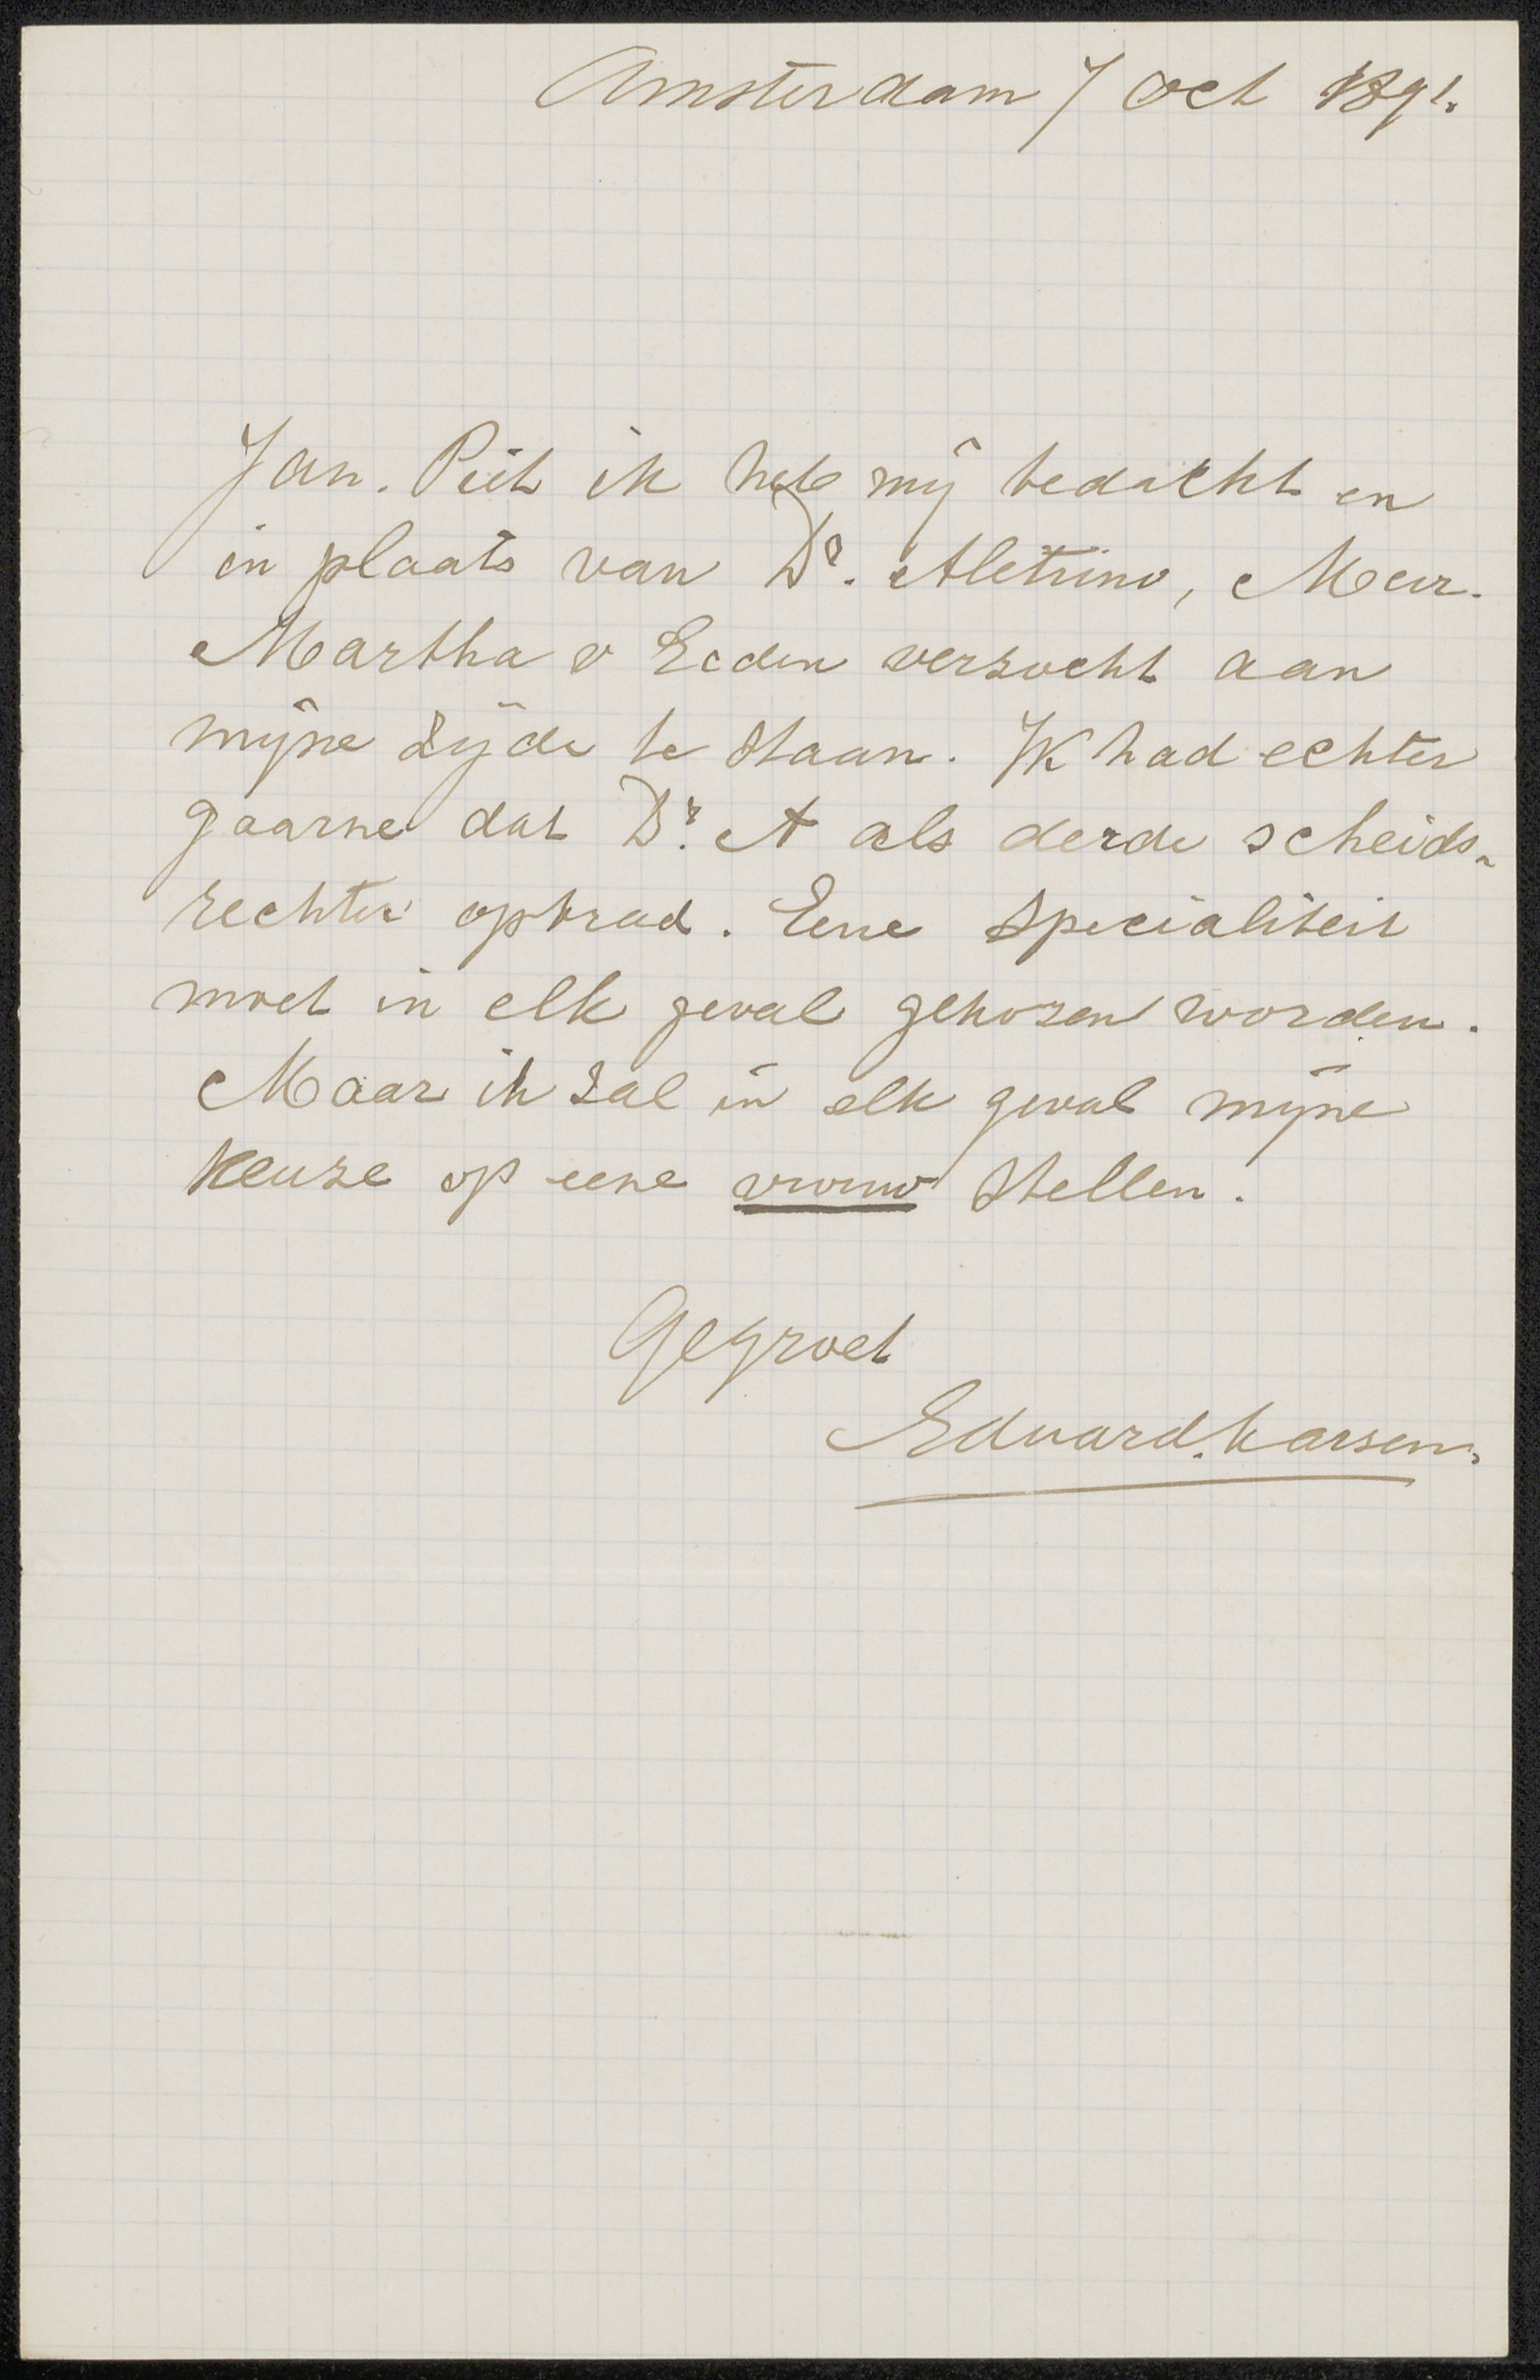 Amsterdam 7 Oct 1891.
Jan. Piet ik heb mij bedacht en
in plaats van Dr. Aletrino, Mevr.
Martha v Eeden verzocht aan
mijne zijde te staan. Ik had echter
gaarne dat Dr. A als derde scheids-
rechter optrad. Eene specialiteit
moet in elk geval gekozen worden.
Maar ik zal in elk geval mijne
keuze op eene vrouw stellen.
Gegroet
Eduard. Karsen.